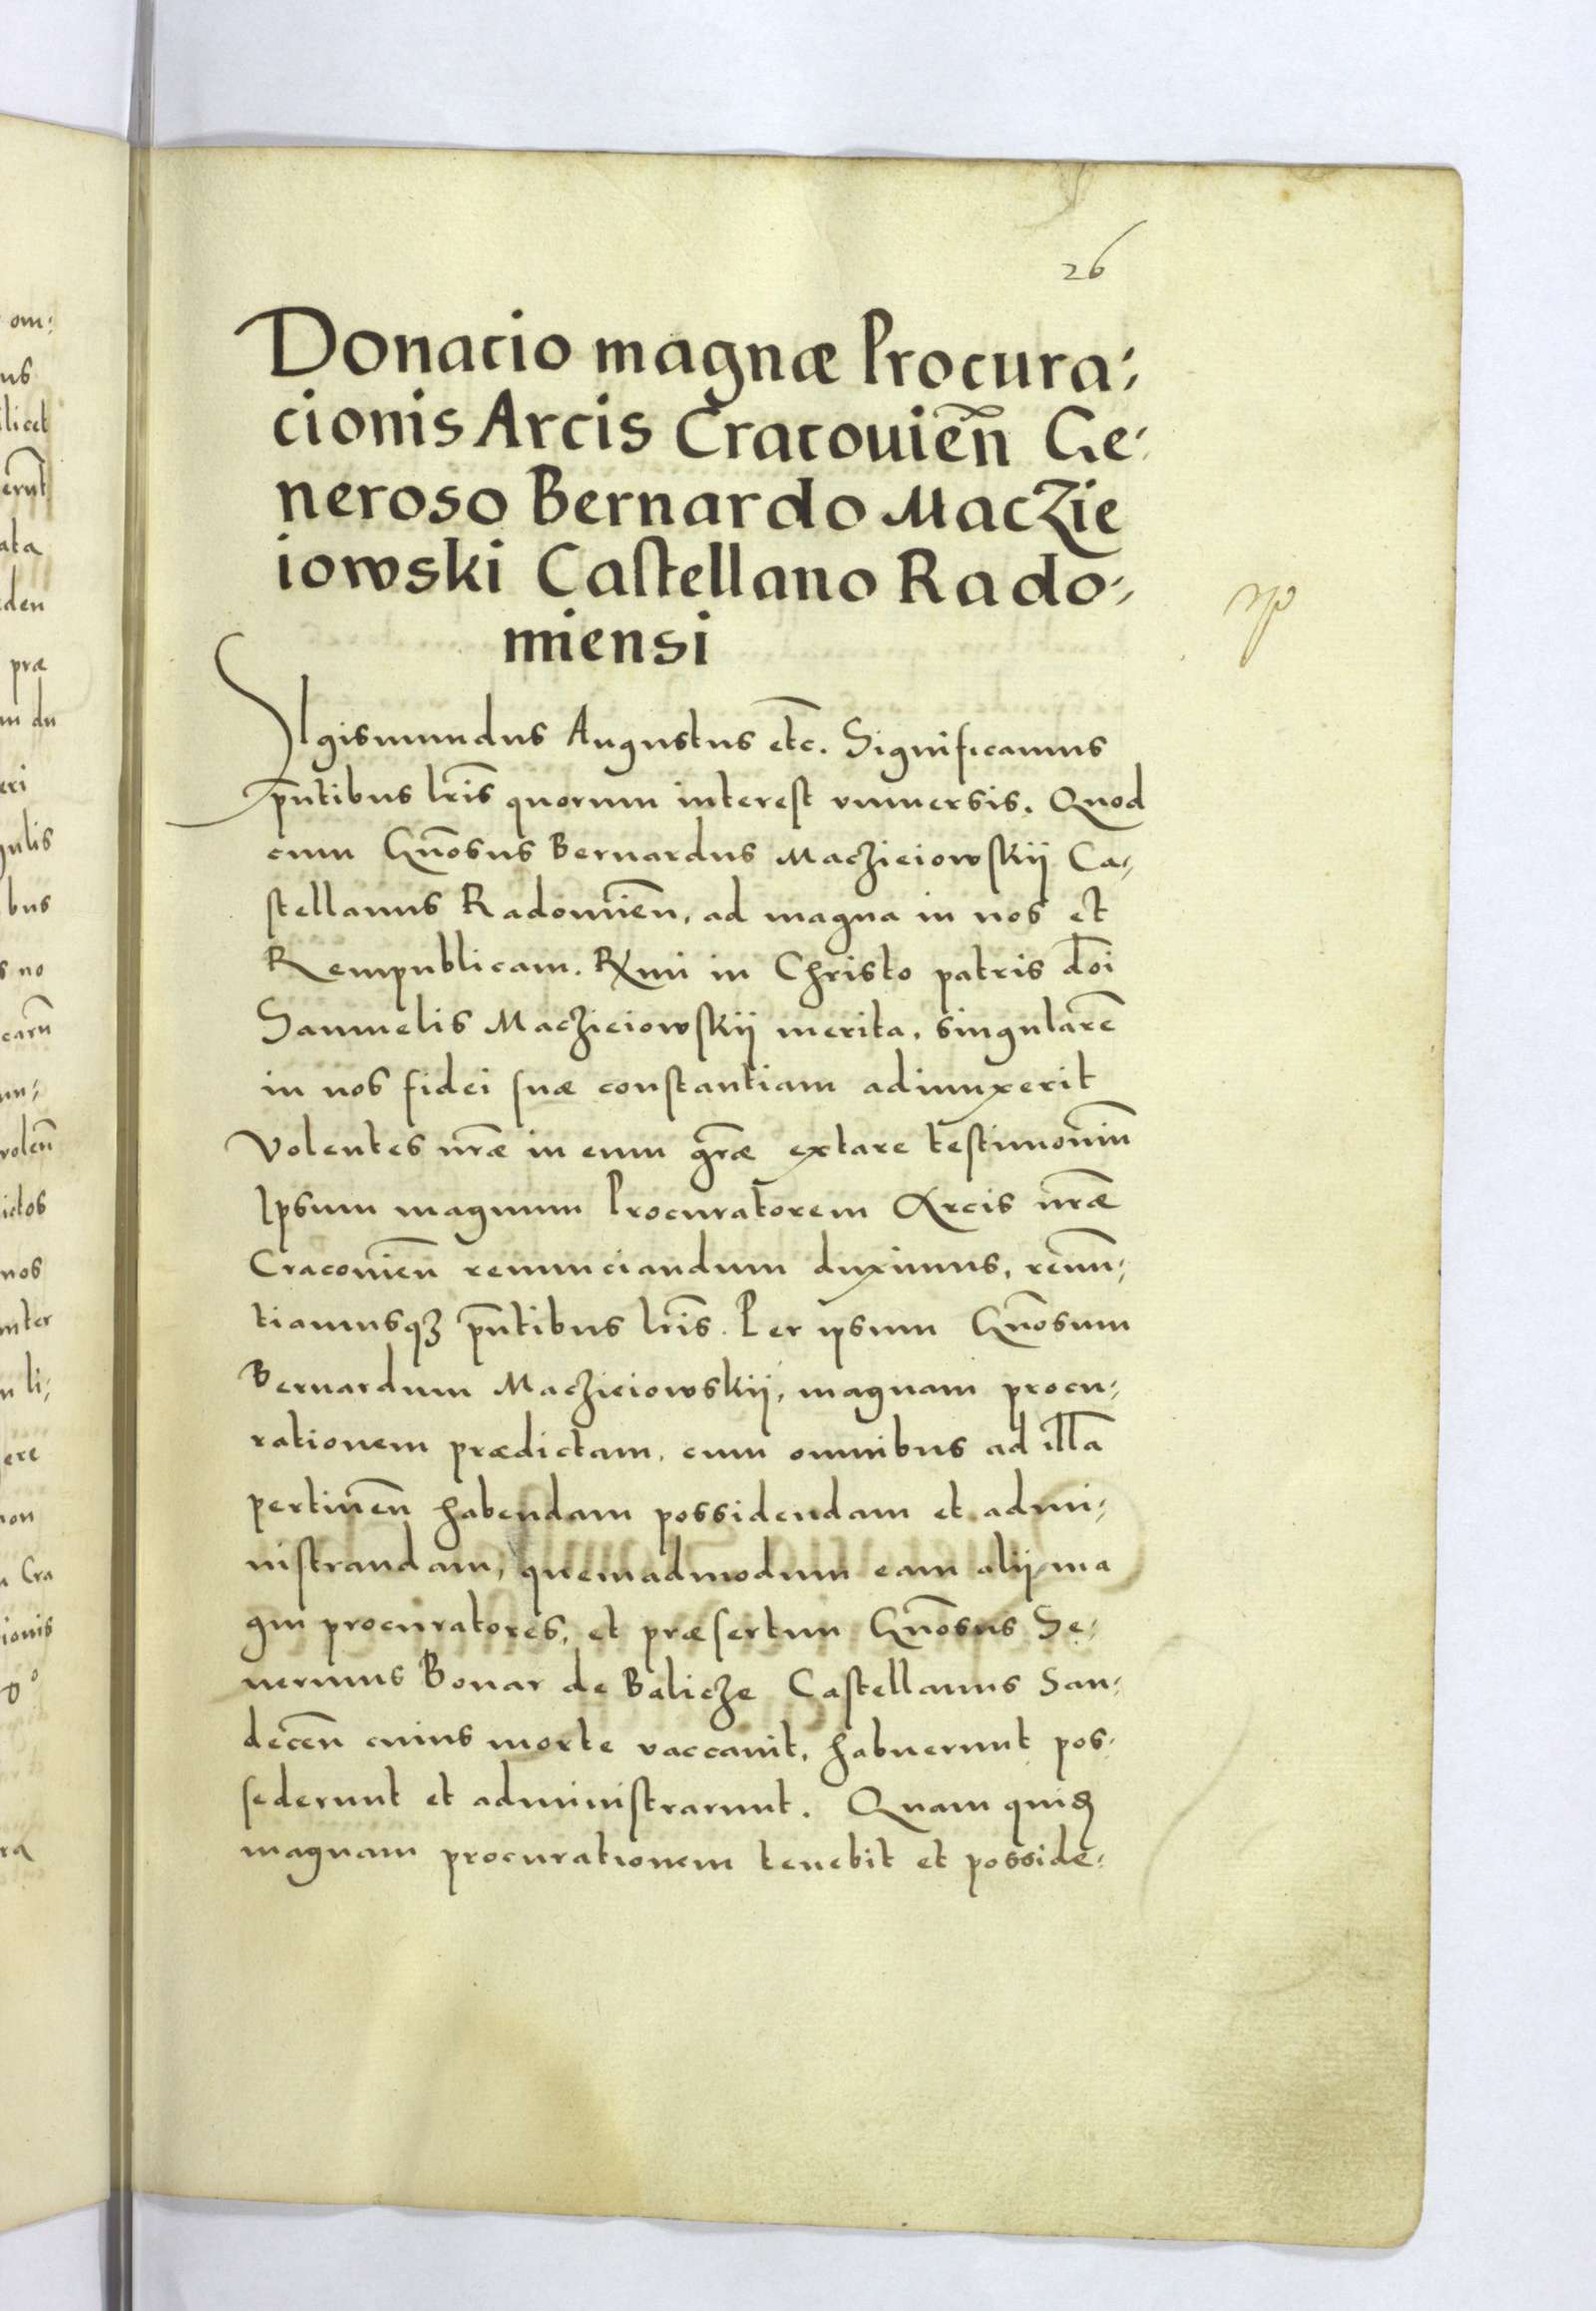 26
Donatio magnæ Procura-
cionis Arcis Cracouien̄ Ge-
neroso Bernardo Maczie
iowski Castellano Rado-
miensi
Sigismundus Augustus etc̄. Significamus
pn̄tibus lr̄is quorum interest vniuersis. Quod
cum Gn̄osus Bernardus Maczieiowskij Ca-
stellanus Radomien̄, ad magna in nos et
Rempublicam. Rx̄mi in Christo patris dn̄i
Samuelis Maczieiowskij merita, singularē
in nos fidei suæ constantiam adiunxerit
Volentes nr̄æ in eum gr̄æ extare testimoniū
Ipsum magnum Procuratorem Arcis nr̄æ
Cracouien̄ renunciandum duximus, renun̄-
tiamusqꝫ pn̄tibus lr̄is. Per ipsum Gn̄osum
Bernardum Maczieiowskij, magnam procu-
rationem prædictam, cum omnibus ad illā
pertinen̄ habendam possidendam et admi-
nistrandam, quemadmodum eam alij ma
gni procuratores, et præsertim Gn̄osus Se-
uerinus Bonar de Balicze Castellanus San-
decen̄ cuius morte vaccauit, habuerunt pos-
sederunt et administrarunt. Quam quidē
magnam procurationem tenebit et posside-